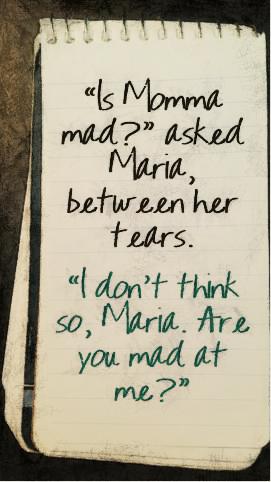 “Is Momma
mad?” asked
Maria,
between her
tears.
“I don't think
so, Maria. Are
you mad at
me?”